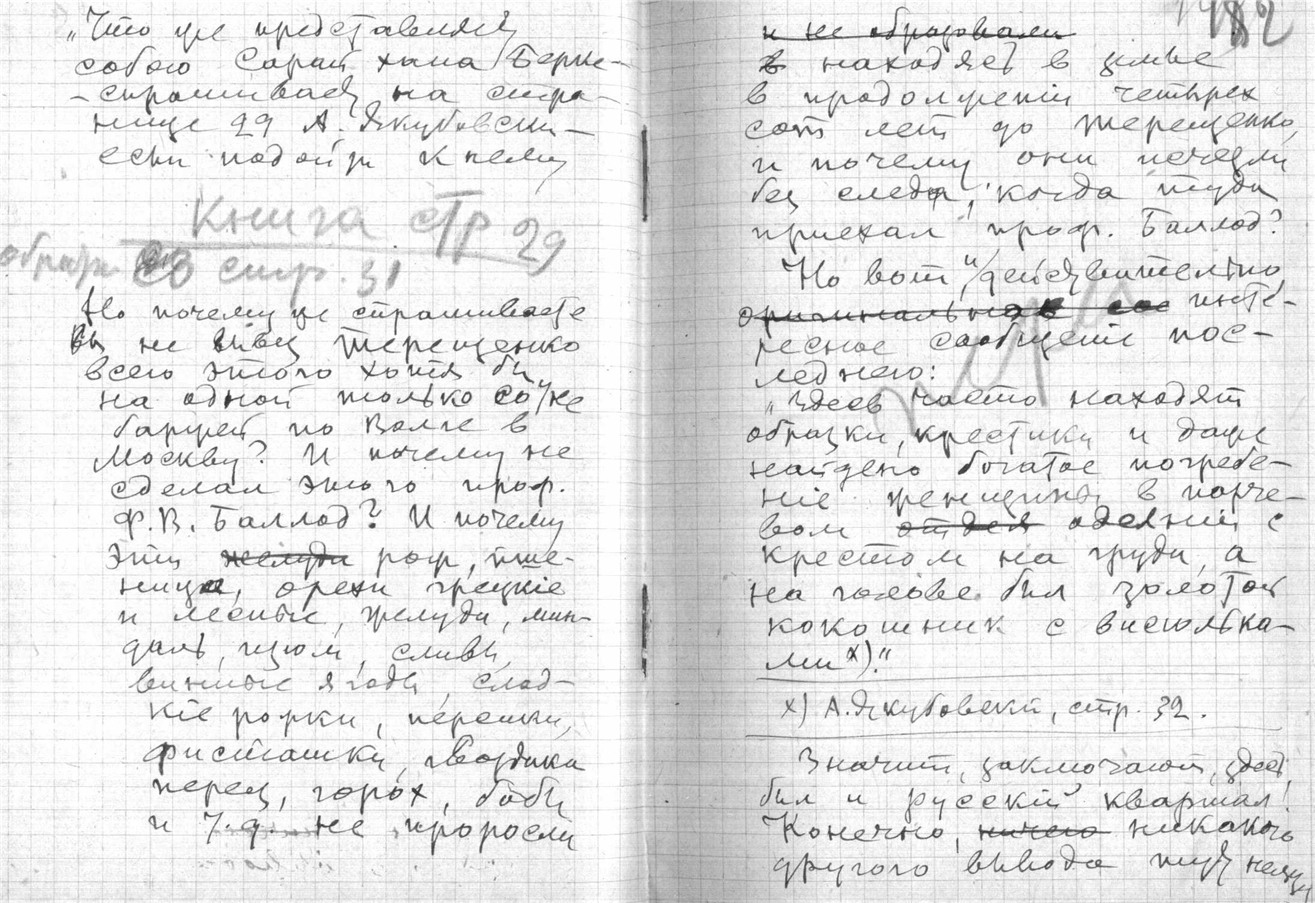 „Что же представляет
собою Сарай хана Берке-
- спрашивает на стра-
нице 29 А. Якубовски-
если подойти к нему
Книга стр 29
образ. со стр. 31
Но почему не спрашиваете
вы не вывез Терещенко
всего этого хотя бы
на одной только со/же
баржей по Волге в
Москву? И почему не
сделал этого проф.
Ф.В. Баллод? И почему
эти желуди рож, пше-
ница, орехи грецкіе
и лесные, желуди, мин-
даль, изюм, сливы,
винные ягоды, слад-
кіе рожки, перешки,
фисташки, гвоздика
перец, горох, бобы
и т.д. не проросли
1982
и не образовали
находяет в земле
в продолженіи четырех
сот лет до Терещенко,
и почему они исчезли
без следа, когда туда
приехал проф. Баллод?
Но вот и действительно
оригинальное инте-
ресное сообщеніе пос-
леднего:
„Здесь часто находят
образки, крестики и даже
найдено богатое погребе-
ніе женщины в парче-
вом отдел одеянии с
крестом на груди, а
на голове был золотой
кокошник с висюлька-
ми х)."
х) А. Якубовскій, стр. 32.
Значит, заключают, здесь
был и русскій квартал!
Конечно, ничего никакого
другого вывода тут нельзя